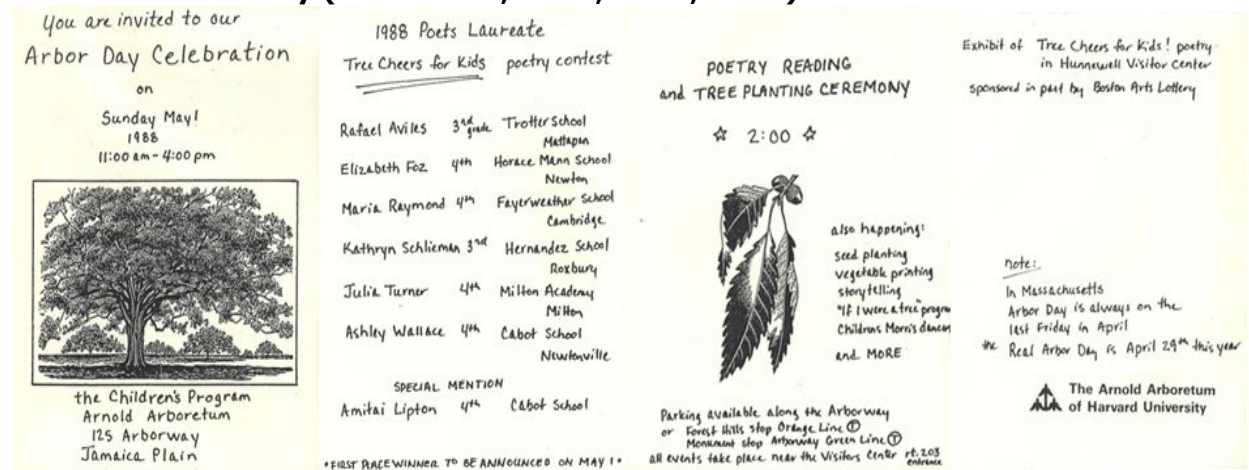 You are invited to our
Arbor Day Celebration
on
Sunday May 1
1988
11:00 am - 4:00 pm
the Children's Program
Arnold Arboretum
125 Arborway
Jamaica Plain
1988 Poets Laureate
Tree Cheers for Kids poetry contest
Rafael Aviles 3rd grade Trotter School
Mattapan
Elizabeth Foz 4th Horace Mann School
Newton
Maria Raymond 4th Fayerweather School
Cambridge
Kathryn Schlieman 3rd Hernandez School
Roxbury
Julia Turner 4th Milton Academy
Milton
Ashley Wallace 4th Cabot School
Newtonville
SPECIAL MENTION
Amitai Lipton 4th Cabot School
• FIRST PLACE WINNER TO BE ANNOUNCED ON MAY 1 •
POETRY READING
and TREE PLANTING CEREMONY
☆ 2:00 ☆
also happening:
seed planting
vegetable printing
storytelling
"If I were a tree" progra
Childrens Morris dancer
and MORE
Parking available along the Arborway
or Forest Hills stop Orange Line Ⓣ
Monument stop Arborway Green Line Ⓣ
all events take place near the Visitors Center rt. 203
entrance
Exhibit of Tree Cheers for Kids! poetry
in Hunnewell Visitor Center
sponsored in part by Boston Arts Lottery
note:
In Massachusetts
Arbor Day is always on the
last Friday in April
the Real Arbor Day is April 29th this year
The Arnold Arboretum
of Harvard University